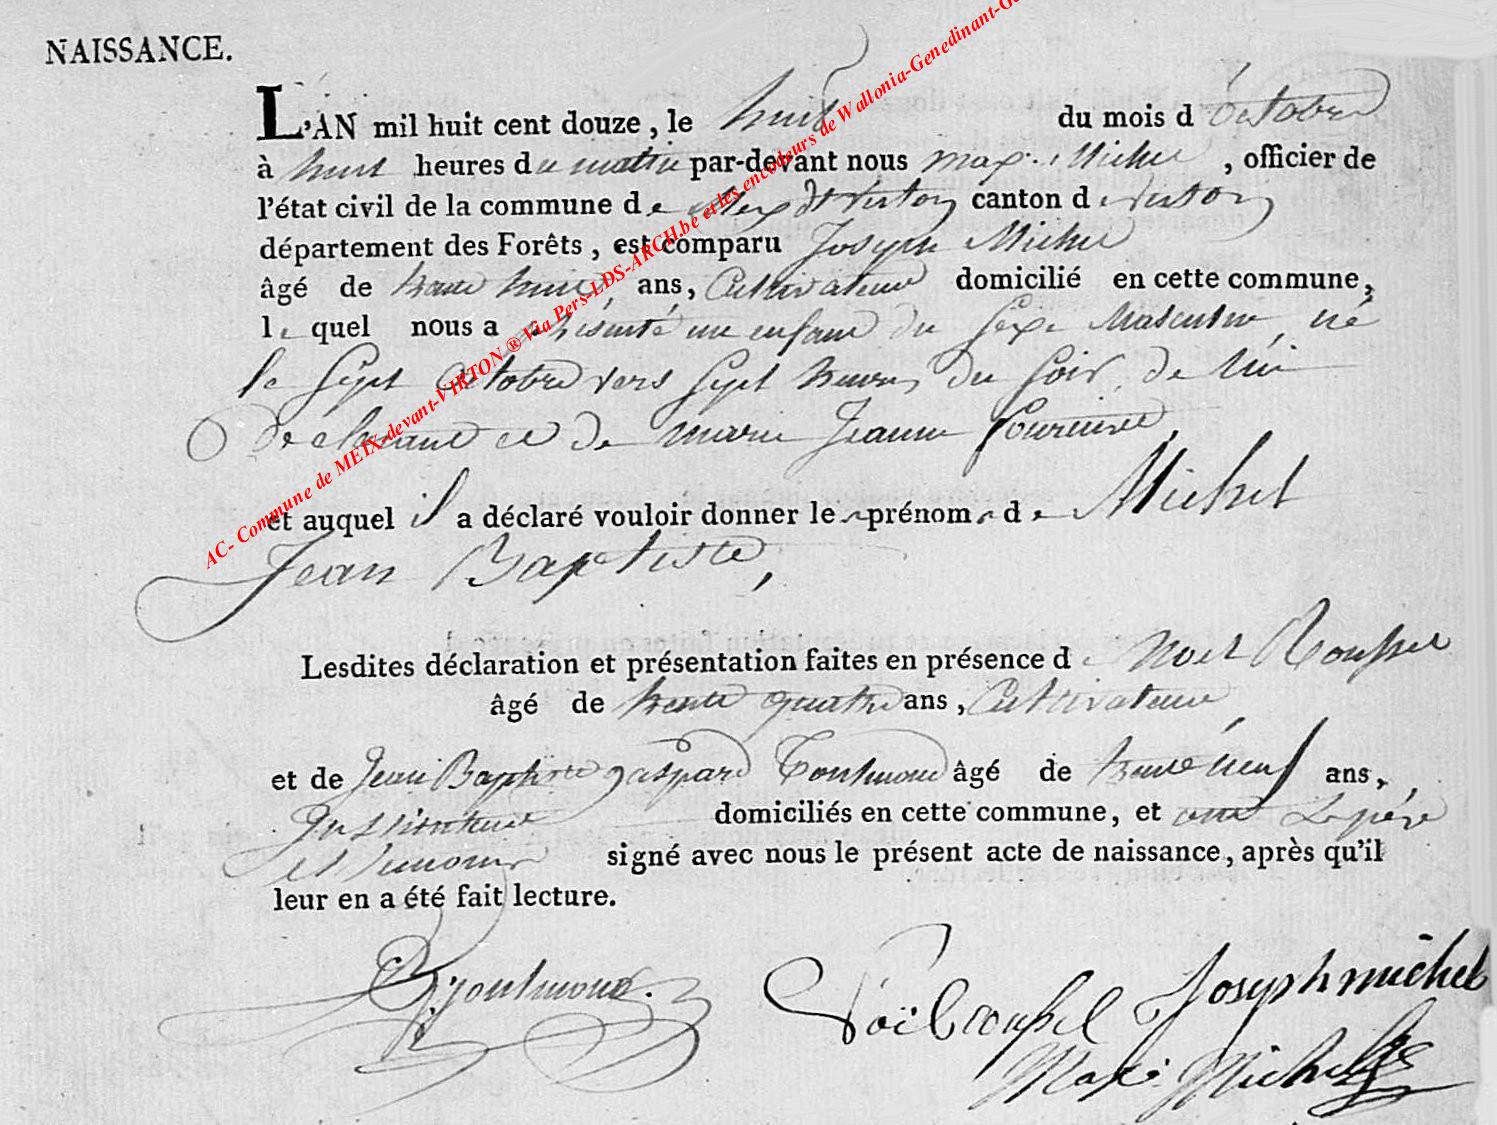 NAISSANCE.
L'AN mil huit cent douze, le huit du mois d'octobre
à huit heures du matin par-devant nous max. Michel, officier de
l'état civil de la commune de Meix dt Virton canton de virton
département des Forêts, est comparu Joseph Michel
âgé de trente huit, ans, Cultivateur domicilié en cette commune,
lequel nous a présenté un enfant du Sexe Masculin, né
le Sept octobre vers Sept heures du Soir, de lui
déclarant et de marie Jeanne
et auquel il a déclaré vouloir donner le prénom de Michel
Jean Baptiste,
Lesdites déclaration et présentation faites en présence de Noel Roussel
âgé de trente quatre ans, Cultivateur
et de Jean Baptiste gaspard âgé de trente neuf ans,
Instituteur domiciliés en cette commune, et ont Le père
et témoins signé avec nous le présent acte de naissance, après qu'il
leur en a été fait lecture.
Noël roussel Joseph michel
Maxi: Michel
AC- Commune de MEIX-devant-VIRTON ® Via Pers-LDS-ARCH.be et les encodeurs de Wallonia-Genedinant-Ge